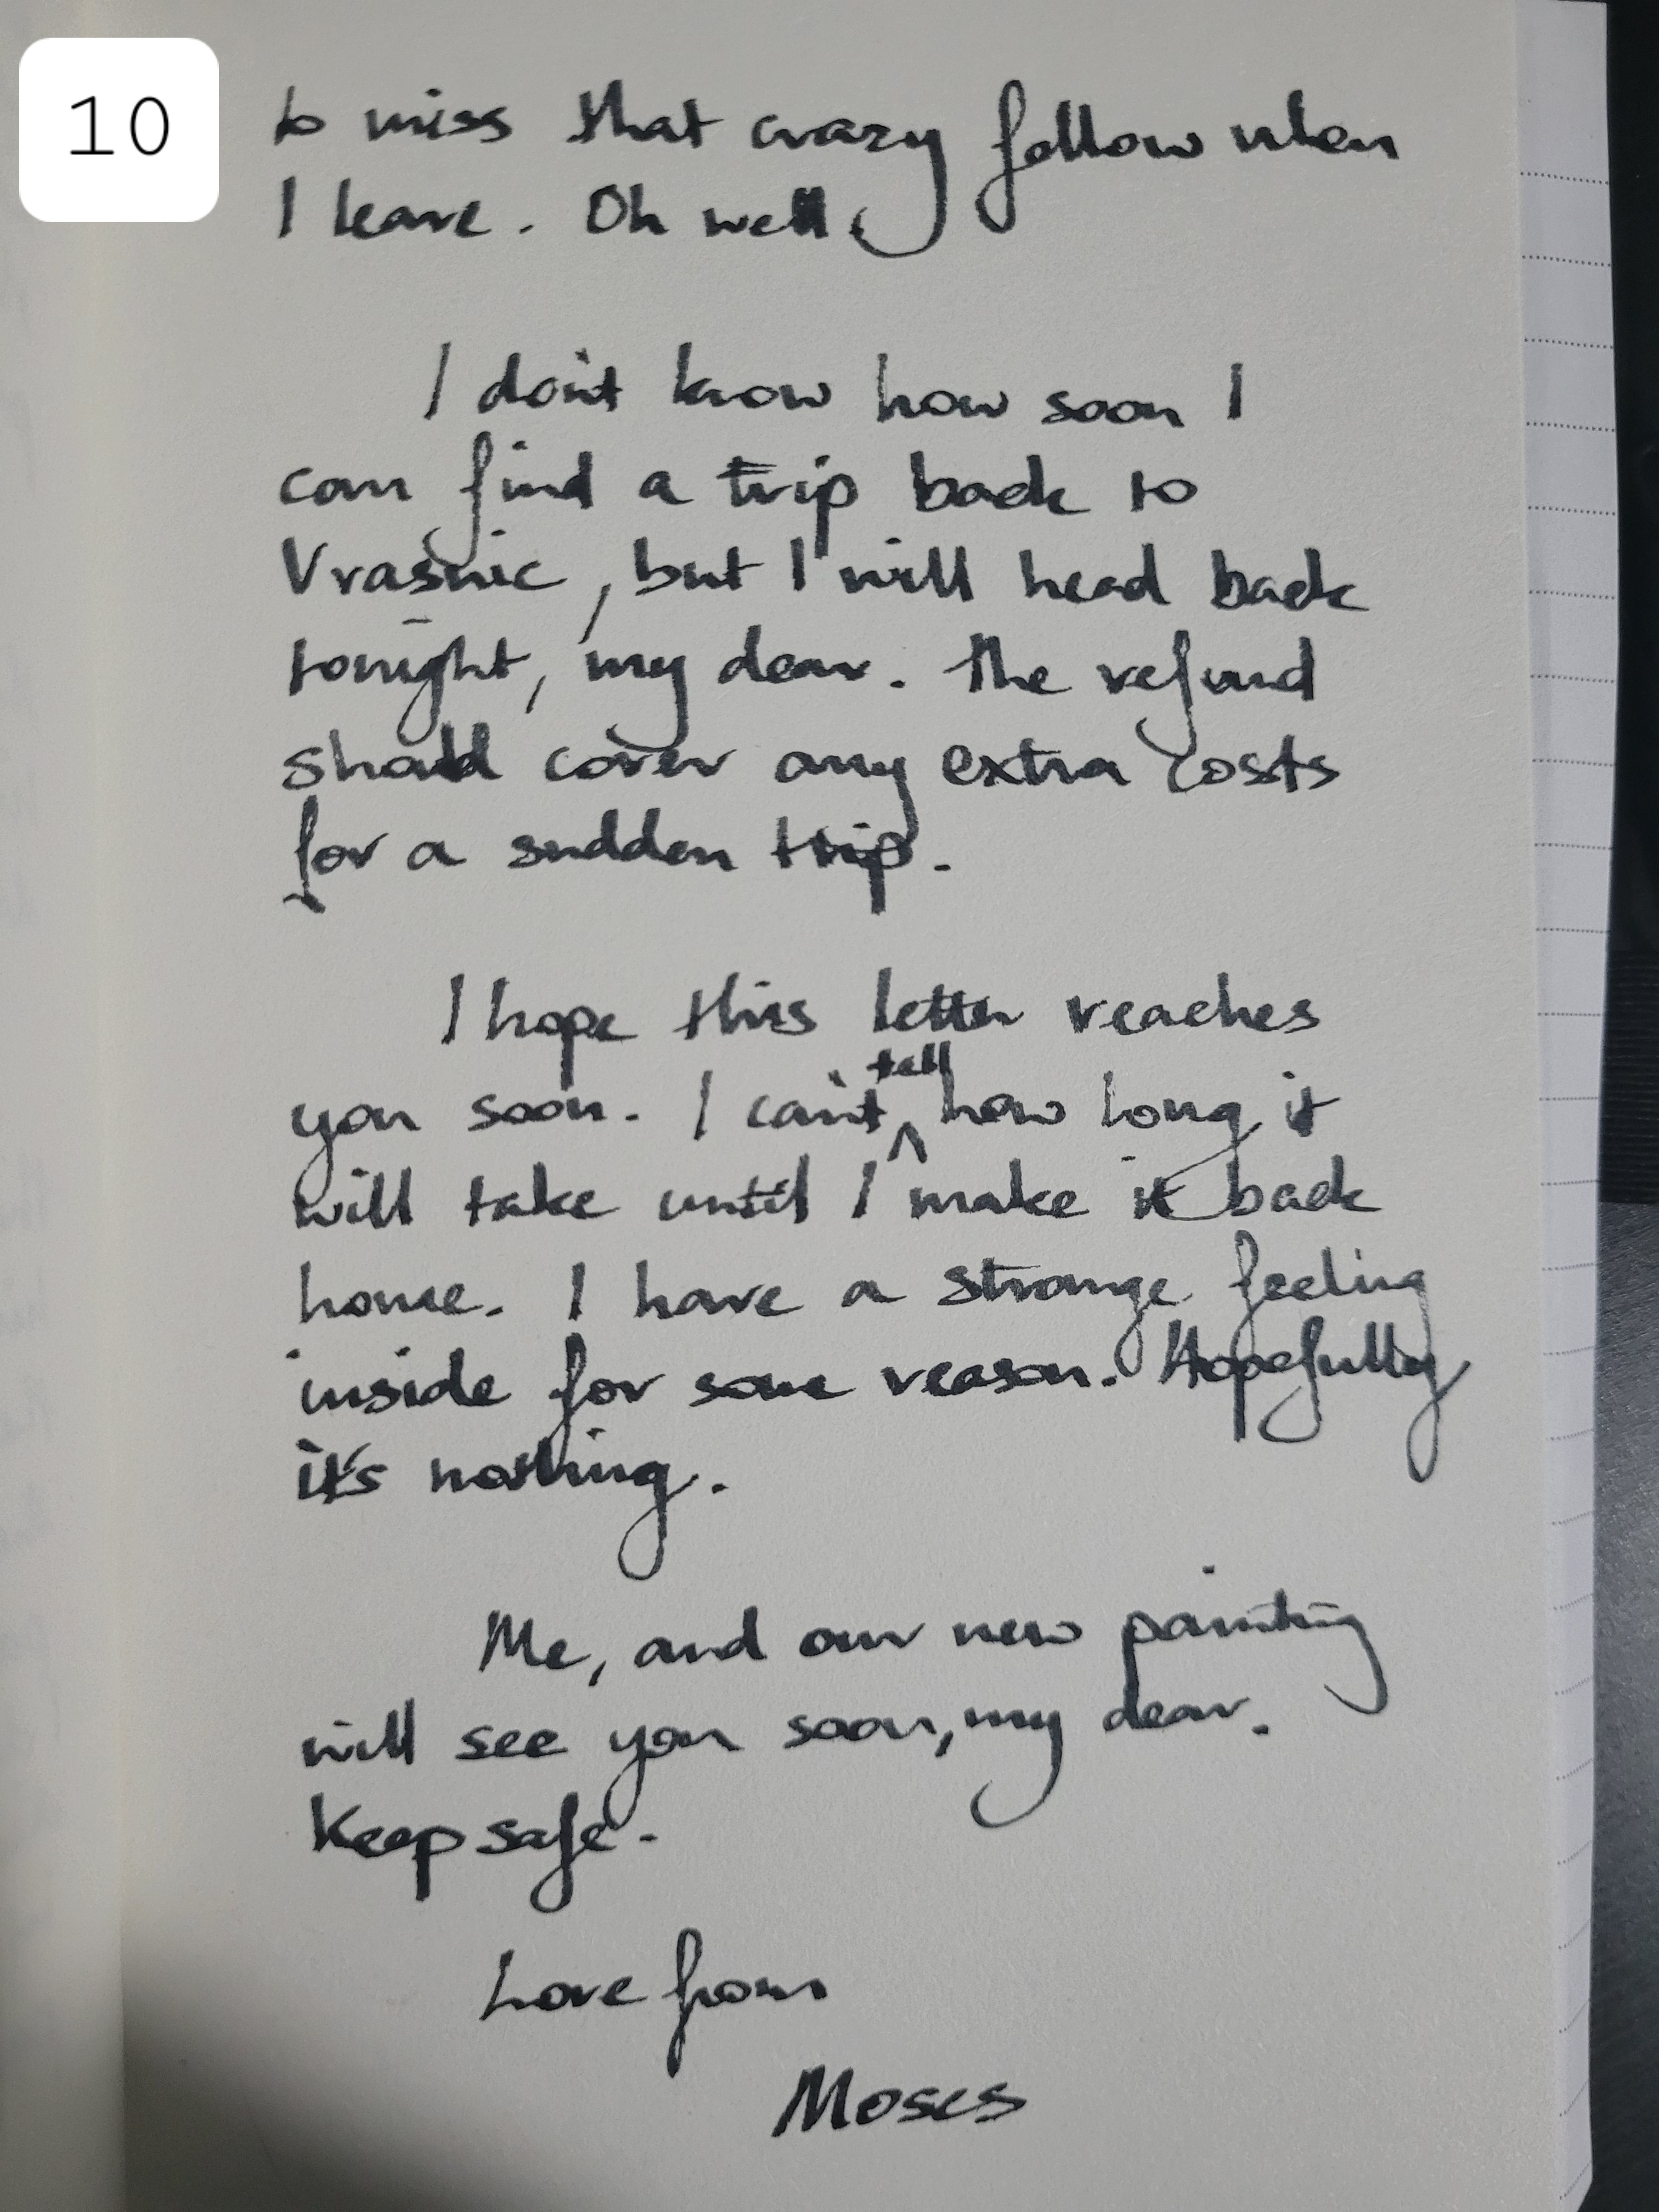 10
to miss that crazy fellow when
I leave. Oh well.
I don't know how soon I
can find a trip back to
Vrasnic, but I will head back
tonight, my dear. The refund
should cover any extra costs
for a sudden trip.
I hope this letter reaches
you soon. I can't tell how long it
will take until I make it back
home. I have a strange feeling
inside for some reason. Hopefully
it's nothing.
Me, and our new painting
will see you soon, my dear.
Keep safe.
Love from
Moses